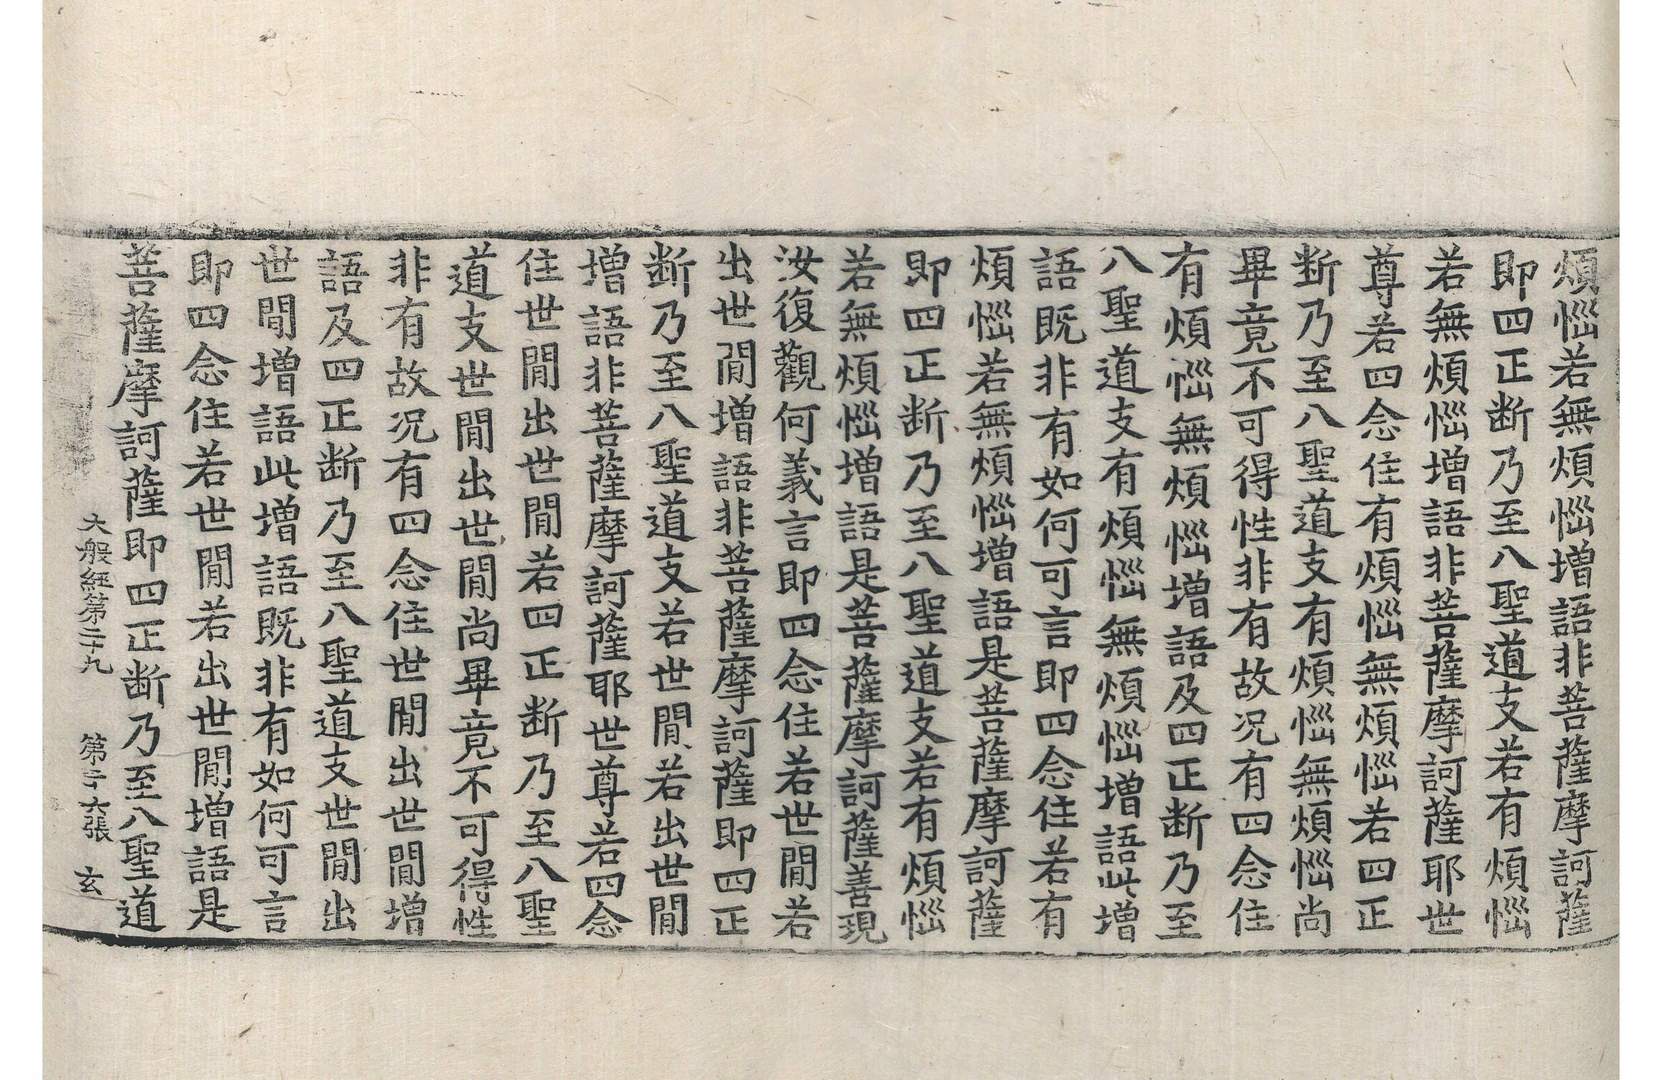 煩惱若無煩惱增語非菩薩摩訶薩
即四正断乃至八聖道支若有煩惱
若無煩惱增語非菩薩摩訶薩耶世
尊若四念住有煩惱無煩惱若四正
断乃至八聖道支有煩惱無煩惱尚
畢竟不可得性非有故况有四念住
有煩惱無煩惱增語及四正断乃至
八聖道支有煩惱無煩惱增語此增
語既非有如何可言即四念住若有
煩惱若無煩惱增語是菩薩摩訶薩
即四正断乃至八聖道支若有煩惱
若無煩惱增語是菩薩摩訶薩善現
汝復觀何義言即四念住若世閒若
出世閒增語非菩薩摩訶薩即四正
断乃至八聖道支若世閒若出世閒
增語非菩薩摩訶薩耶世尊若四念
住世閒出世閒若四正断乃至八聖
道支世閒出世閒尚畢竟不可得性
非有故况有四念住世閒出世閒增
語及四正断乃至八聖道支世閒出
世閒增語此增語既非有如何可言
即四念住若世閒若出世閒增語是
菩薩摩訶薩即四正断乃至八聖道
大般經第二十九 第十六張 玄